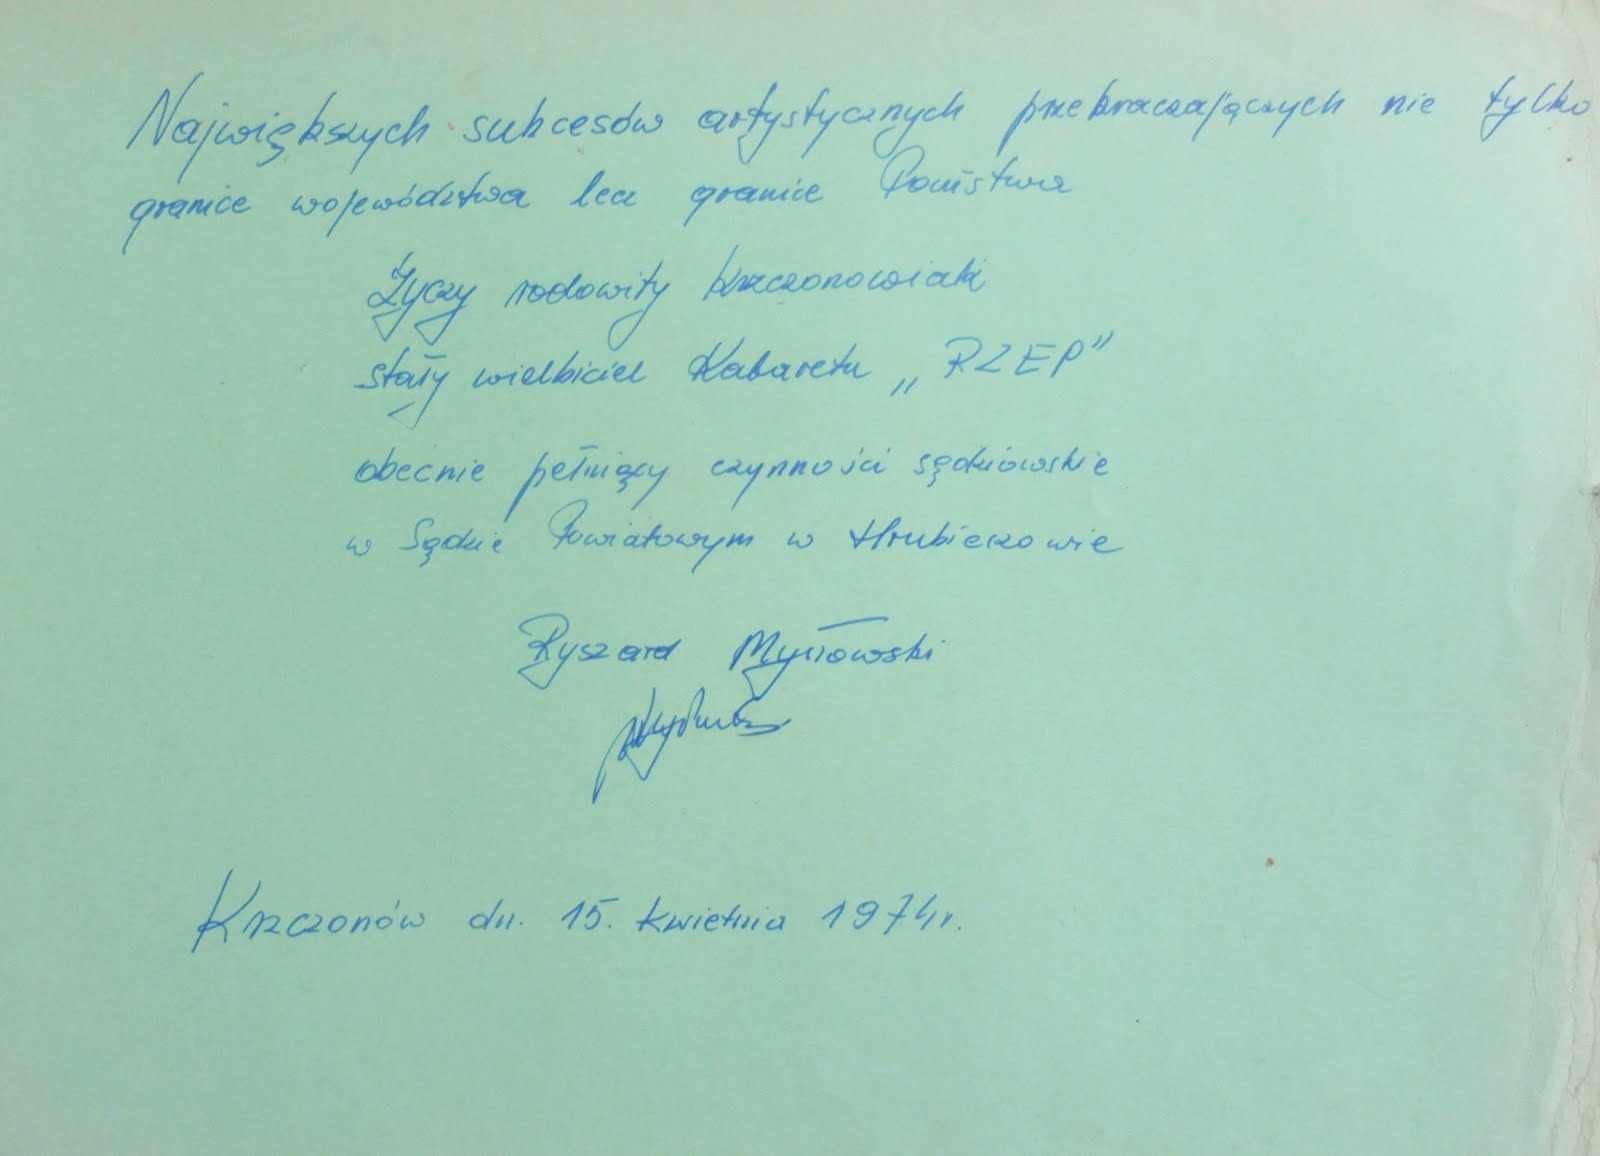 Największych sukcesów artystycznych przekraczających nie tylko
granice województwa lecz granice Państwa
Życzy rodowity Krzczonowiak
stały wielbiciel Kabaretu „RZEP”
obecnie pełniący czynności sędziowskie
w Sądzie Powiatowym w Hrubieszowie
Ryszard
Krzczonów dn. 15. kwietnia 1974r.